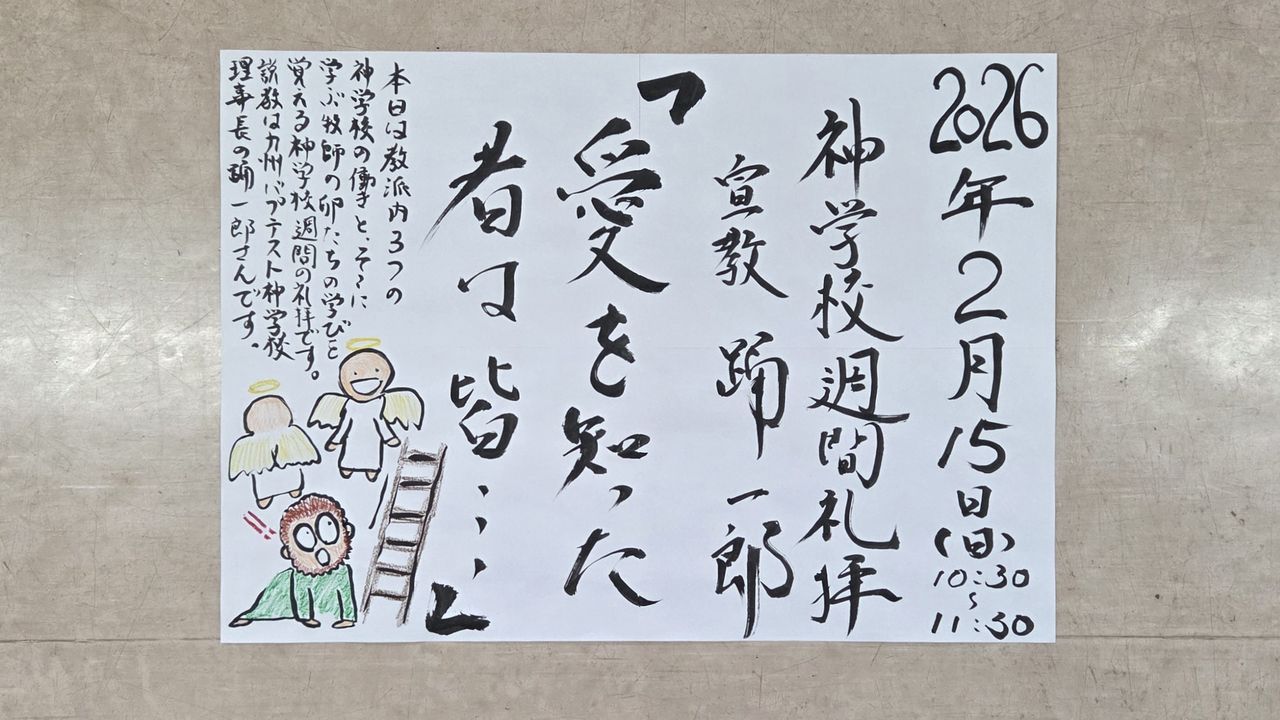 2026年2月15日(日)
10:30
~
11:30
神学校週間礼拝
宣教 踊 一郎
「愛を知った
者は皆……」
本日は教派内3つの
神学校の働きと、そこに
学ぶ牧師の卵たちの学びを
覚える神学校週間の礼拝です。
説教は九州バプテスト神学校
理事長の踊一郎さんです。
!!